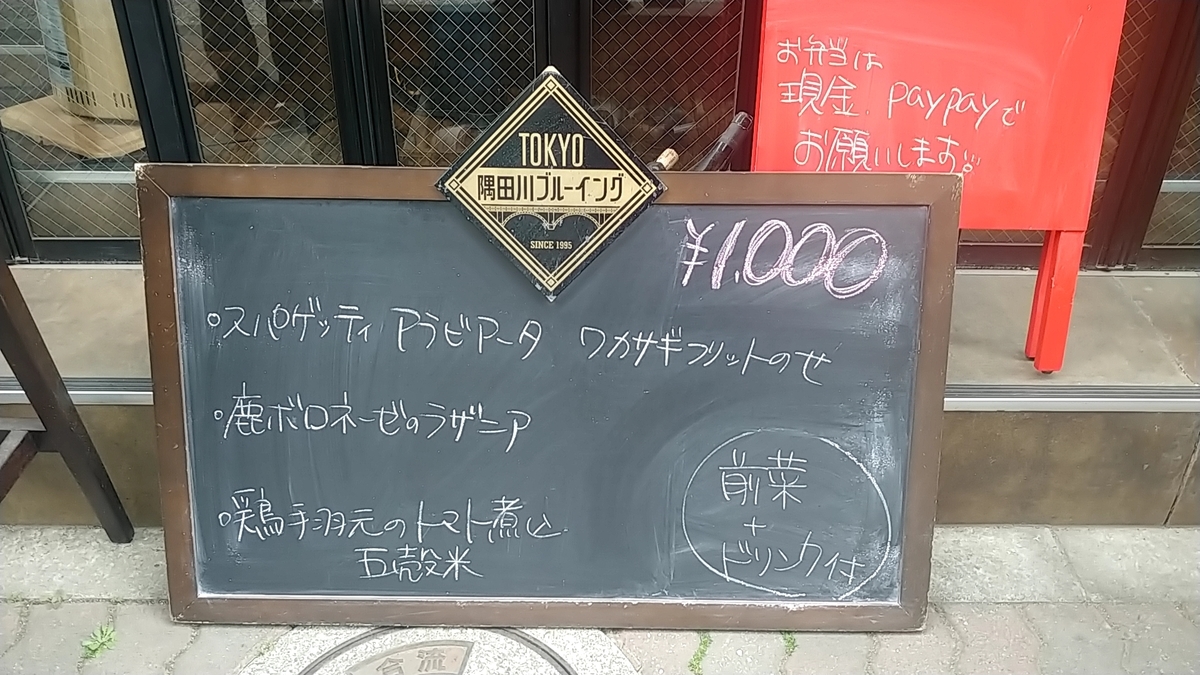 お弁当は
現金.paypayで
お願いします。
TOKYO
隅田川ブルーイング
SINCE 1995
¥1,000
。スパゲッティ アラビアータ ワカサギフリットのせ
。鹿ボロネーゼのラザニア
。鶏手羽元のトマト煮込
五穀米
前菜
+
ドリンク付
合流